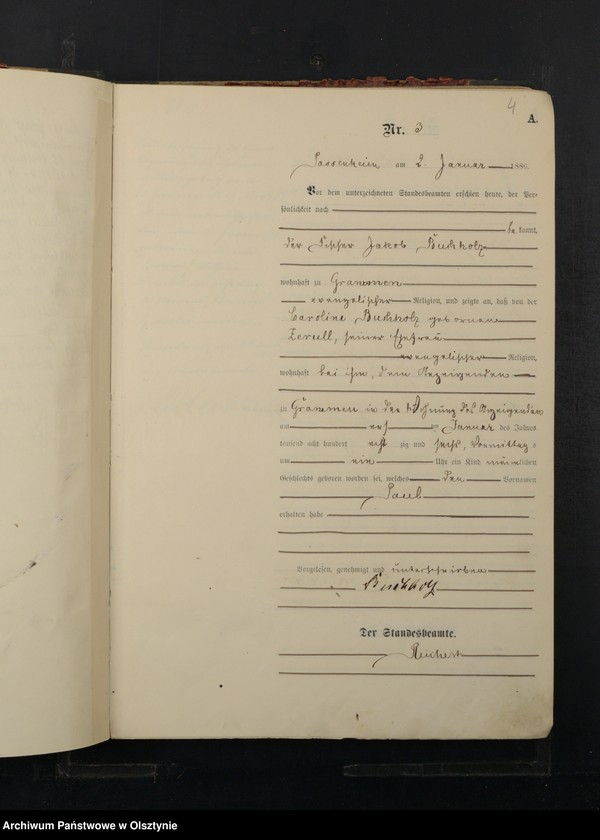 4
A.
Nr. 3
Passenheim am 2. Januar 1886.
Vor dem unterzeichneten Standesbeamten erschien heute, der Per-
sönlichkeit nach
be kannt,
der Fischer Jakob Buchholz
wohnhaft zu Grammen
evangelischer Religion, und zeigte an, daß von der
Caroline Buchholz geborenen
Zerull, seiner Ehefrau
evangelischer Religion,
wohnhaft bei ihm, dem Anzeigenden
zu Grammen in der Wohnung des Anzeigenden
am Januar des Jahres
tausend acht hundert acht zig und sechs, Vormittag s
um ein Uhr ein Kind männlichen
Geschlechts geboren worden sei, welches den Vornamen
Paul
erhalten habe
Vorgelesen, genehmigt und unterschrieben
Buchholz
Der Standesbeamte.
Reichert
Archiwum Państwowe w Olsztynie